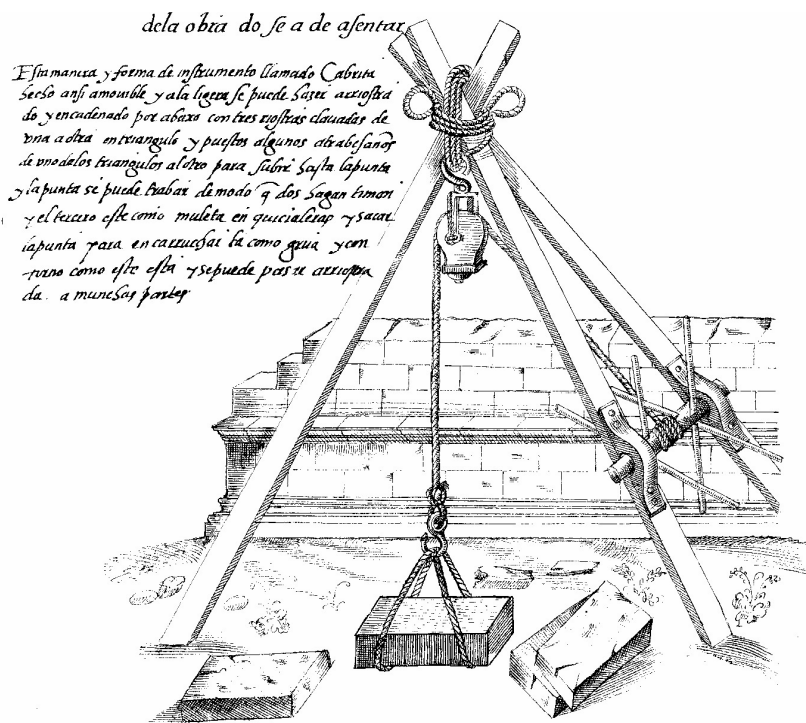 dela obra do se a de asentar
Esta manera y forma de instrumento llamado Cabrita
hecho ansi amouible y ala ligera se puede hazer arriostra
do y encadenado por abaxo con tres riostras clauadas de
vna a otra en triangulo y puestos algunos atrabesaños
de vno delos triangulos al otro para subir hasta lapunta
y lapunta se puede trabar de modo q̄ dos hagan timon
y el tercero este como muleta en quicialeras y sacar
lapunta para en carruchar la como grua y con
torno como este esta y se puede pasar arriostra
da a munchas partes